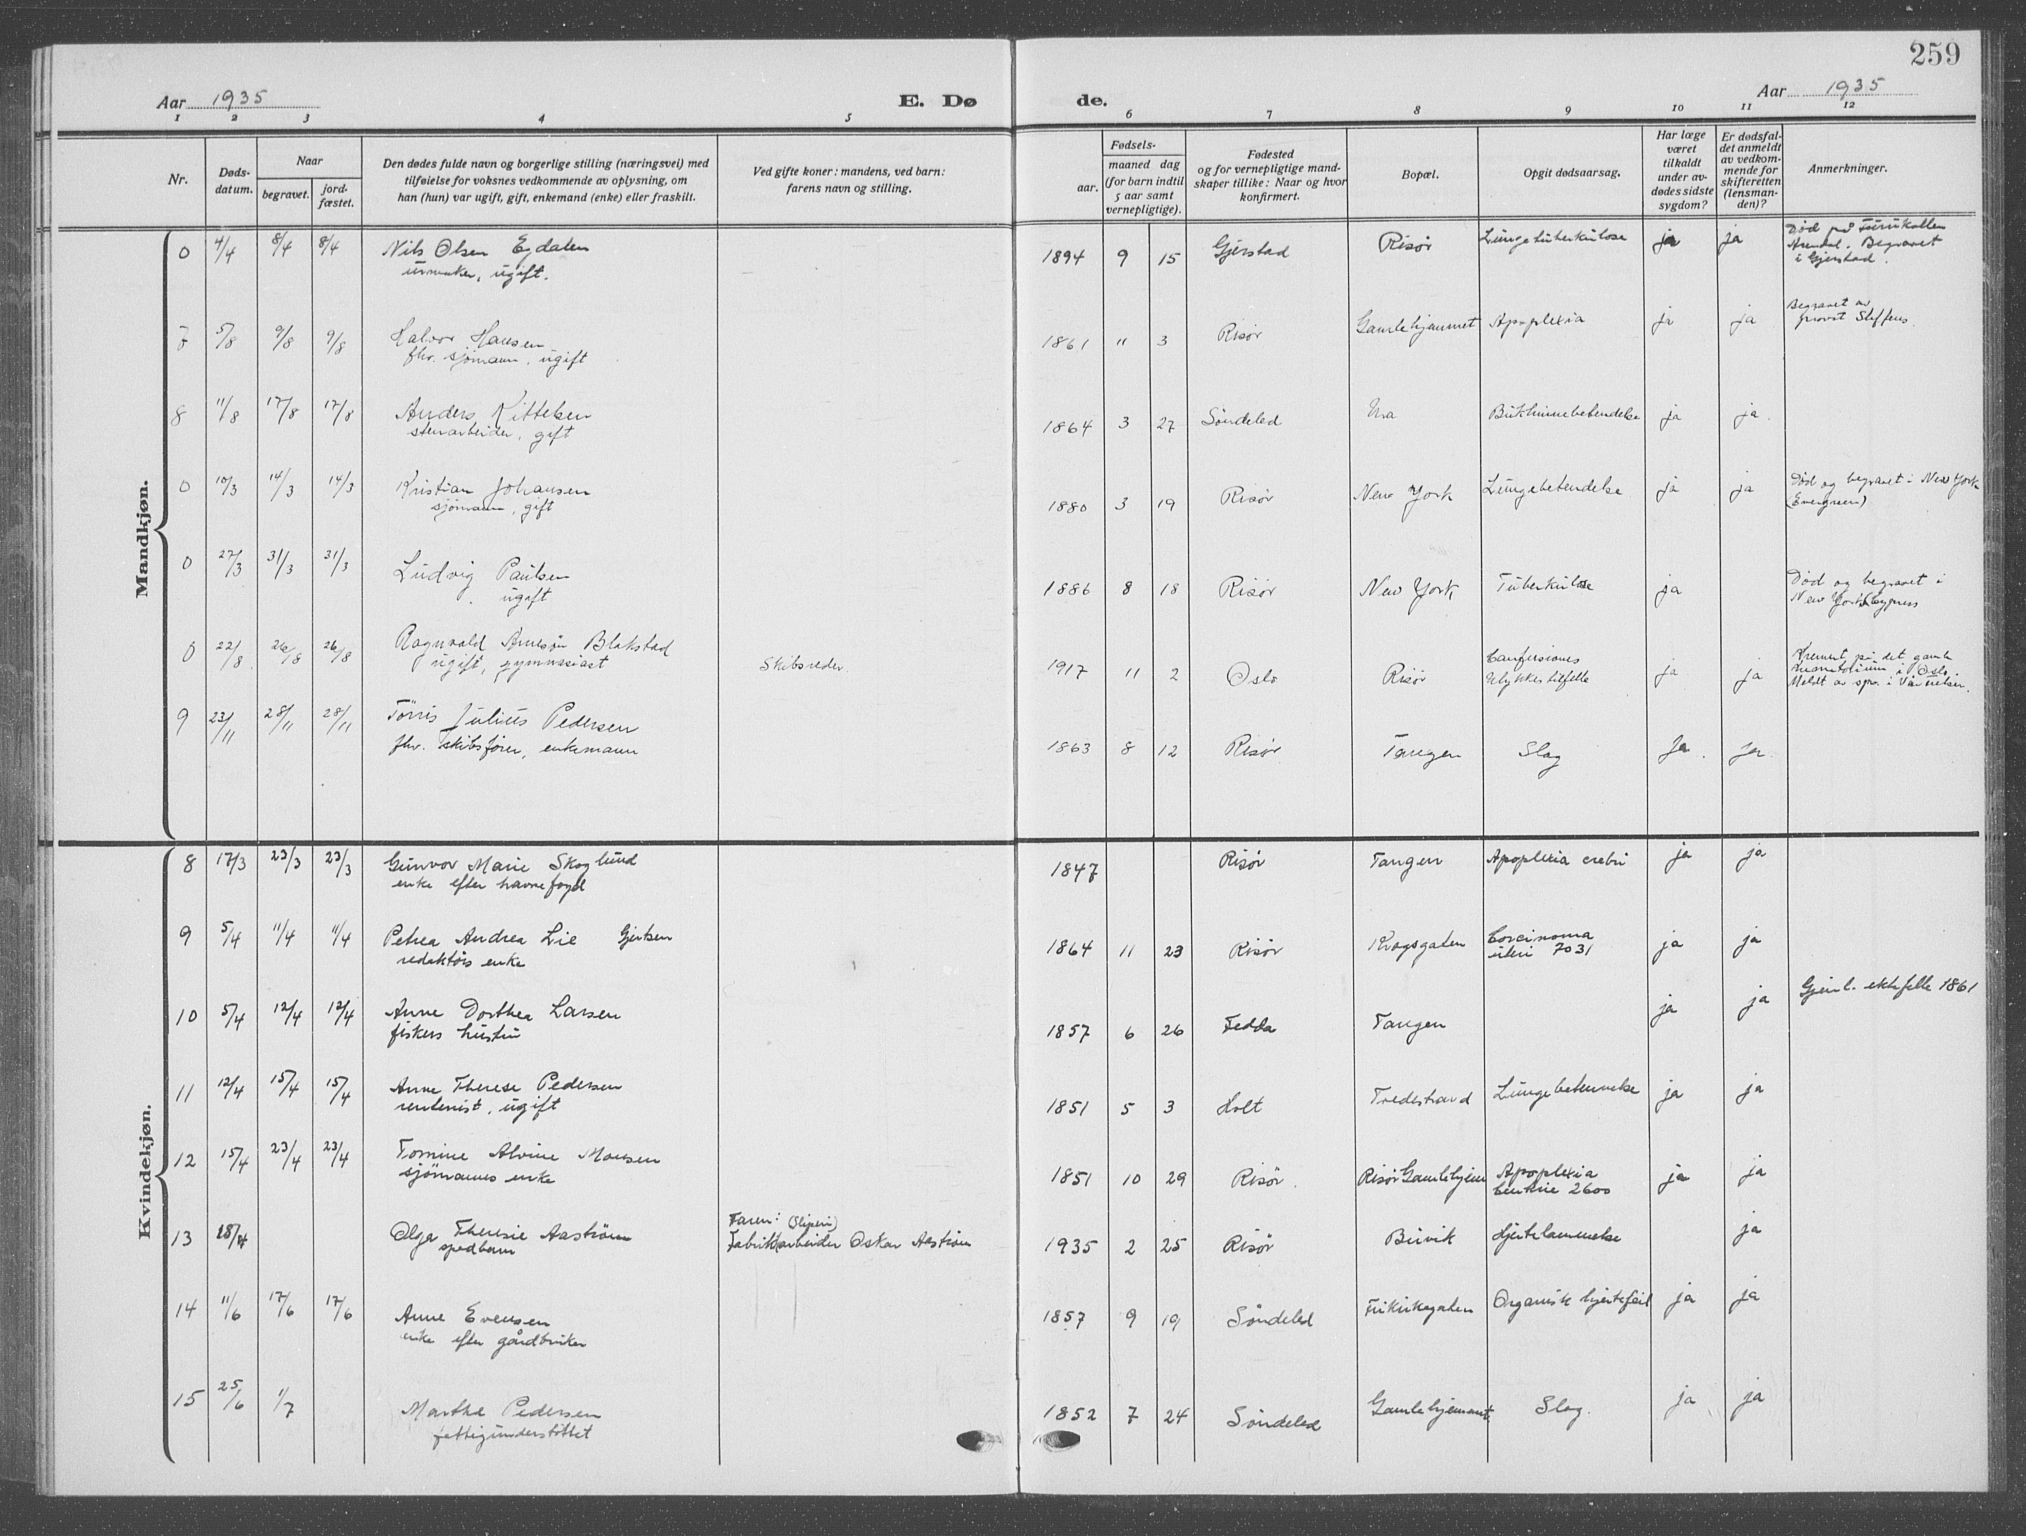 259
Aar 1935
E. Dø
de.
Aar 1935
1 2 3 4 5 6 7 8 9 10 11 12
Nr.
Døds-
datum.
Naar
begravet.
jord-
fæstet.
Den dødes fulde navn og borgerlige stilling (næringsvei) med
tilføielse for voksnes vedkommende av oplysning, om
han (hun) var ugift, gift, enkemand (enke) eller fraskilt.
Ved gifte koner: mandens, ved barn:
farens navn og stilling.
Fødsels-
aar.
maaned dag
(for barn indtil
5 aar samt
vernepligtige).
Fødested
og for vernepligtige mand-
skaper tillike: Naar og hvor
konfirmert.
Bopæl.
Opgit dødsaarsag.
Har læge
været
tilkaldt
under av-
dødes sidste
sygdom?
Er dødsfal-
det anmeldt
av vedkom-
mende for
skifteretten
(lensman-
den)?
Anmerkninger.
Mandkjøn.
0 4/4 8/4 8/4 Nils Olsen Egdalen
urmaker, ugift.
1894 9 15 Gjerstad Risør Lungetuberkulose ja ja
Død på
Arendal. Begravet
i Gjerstad.
7 5/8 9/8 9/8 Halvor Hansen
fhv. sjømann, ugift
1861 " 3 Risør Gamlehjemmet Apoplexia ja ja
Begravet av
provst Steffens.
8 11/8 17/8 17/8 Anders Kittelsen
stenarbeider, gift
1864 3 27 Søndeled Ura Bukhinnebetendelse ja ja
0 10/3 14/3 14/3 Kristian Johansen
sjømann, gift
1880 3 19 Risør New York Lungebetendelse ja ja
Død og begravet i New York
(Evergreen)
0 27/3 31/3 31/3 Ludvig Paulsen
ugift
1886 8 18 Risør New York Tuberkulose ja
Død og begravet i
New York
0 22/8 26/8 26/8 Ragnvald Blakstad
ugift, gymnasiast
Skibsreder.
1917 11 2 Oslo Risør
Ulykkestilfelle ja ja
Kremert på det gamle
i Oslo
Meldt av
9 23/11 28/11 28/11 Tørris Julius Pedersen
fhv. skibsfører, enkemann
1863 8 12 Risør Tangen Slag Ja. Ja.
Kvindekjøn.
8 17/3 23/3 23/3 Gunvor Marie Skoglund
enke efter havnefogd
1847 Risør Tangen Apoplexia crebri ja ja
9 5/4 11/4 11/4 Petrea Andrea Lie Gjertsen
redaktørs enke
1864 11 23 Risør Kragsgaten Corcinoma
uteri 7031 ja ja
10 5/4 12/4 12/4 Anne Dorthea Larsen
fiskers hustru
1857 6 26 Fedda Tangen ja ja
Gjenl. ektefelle 1861
11 12/4 15/4 15/4 Anne Therese Pedersen
rentenist, ugift
1851 5 3 Holt Tvedestrand Lungebetennelse ja ja
12 15/4 23/4 23/4 Tomine Alvine Monsen
sjømanns enke
1851 10 29 Risør. Risør Gamlehjem Apoplexia
2600 ja ja
13 18/4 Olga Theresie Aastrøm
spedbarn
Faren: (Sliperi)
Fabrikkarbeider Oskar Aastrøm
1935 2 25 Risør Buvik Hjertelammelse ja
14 11/6 17/6 17/6 Anne Evensen
enke efter gårdbruker
1857 9 19 Søndeled Frikirkegaten Organisk hjertefeil ja ja
15 25/6 1/7 Marthe Pedersen
fattigunderstøttet
1852 7 24 Søndeled Gamlehjemmet Slag. ja ja